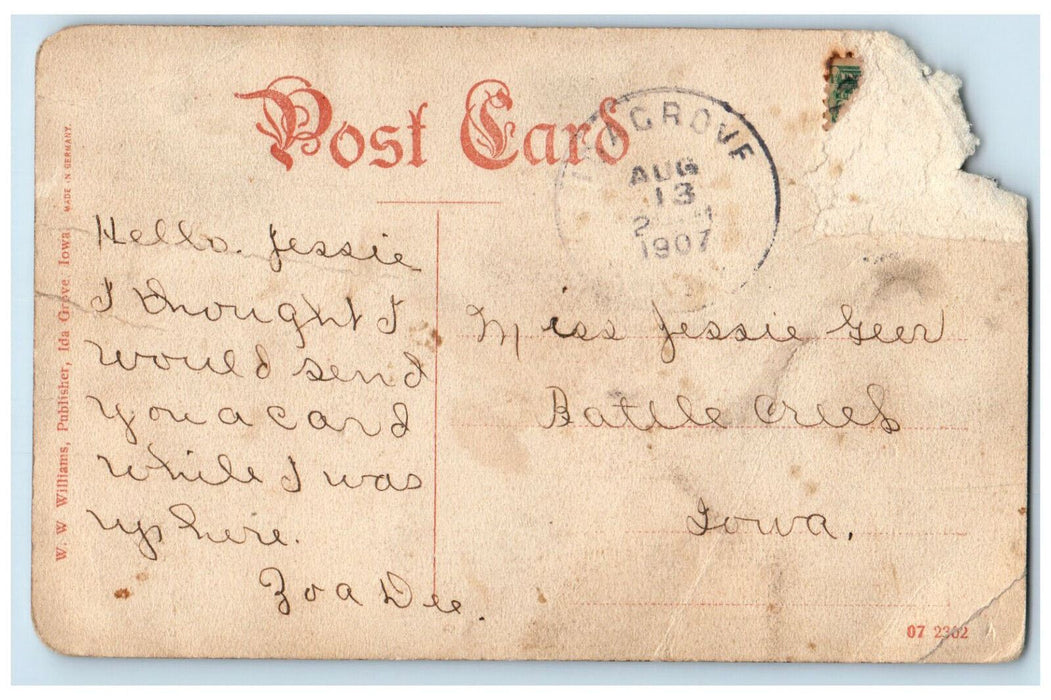 Post Card
GROVE
AUG
13
2
1907
Hello. Jessie
I thought I
would send
you a card
while I was
up here.
Zoa Dee.
Miss Jessie Geer
Battle Creek
Iowa.
W. W Williams, Publisher, Ida Grove Iowa MADE IN GERMANY.
07 2302